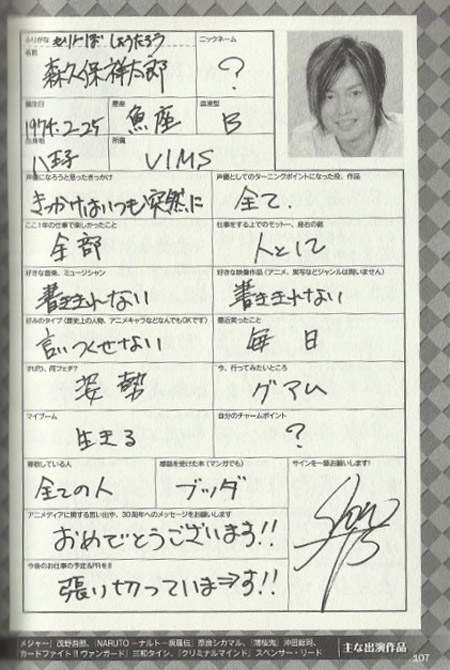 ふりがな もりくぼ しょうたろう
ニックネーム
名前
森久保祥太郎
?
誕生日
星座
血液型
1974.2.25
魚座
B
出身地
所属
八王子
VIMS
声優になろうと思ったきっかけ
声優としてのターニングポイントになった役、作品
きっかけはいつも突然に
全て.
ここ1年の仕事で楽しかったこと
仕事をする上でのモットー、座右の銘
全部
人として
好きな音楽、ミュージシャン
好きな映像作品(アニメ、実写などジャンルは問いません)
書ききれない
書ききれない
好みのタイプ(歴史上の人物、アニメキャラなどなんでもOKです)
最近笑ったこと
言いつくせない
毎日
ずばり、何フェチ?
今、行ってみたいところ
姿勢
グアム
マイブーム
自分のチャームポイント
生きる
?
尊敬している人
感銘を受けた本(マンガでも)
サインを一筆お願いします!
全ての人
ブッダ
アニメディアに関する思い出や、30周年へのメッセージをお願いします
おめでとうございます!!
今後のお仕事の予定&PRを!!
張り切っていま⇒す!!
『メジャー』茂野吾郎、『NARUTO-ナルト-疾風伝』奈良シカマル、『薄桜鬼』沖田総司、
『カードファイト!!ヴァンガード』三和タイシ、『クリミナルマインド』スペンサー・リード
主な出演作品
107